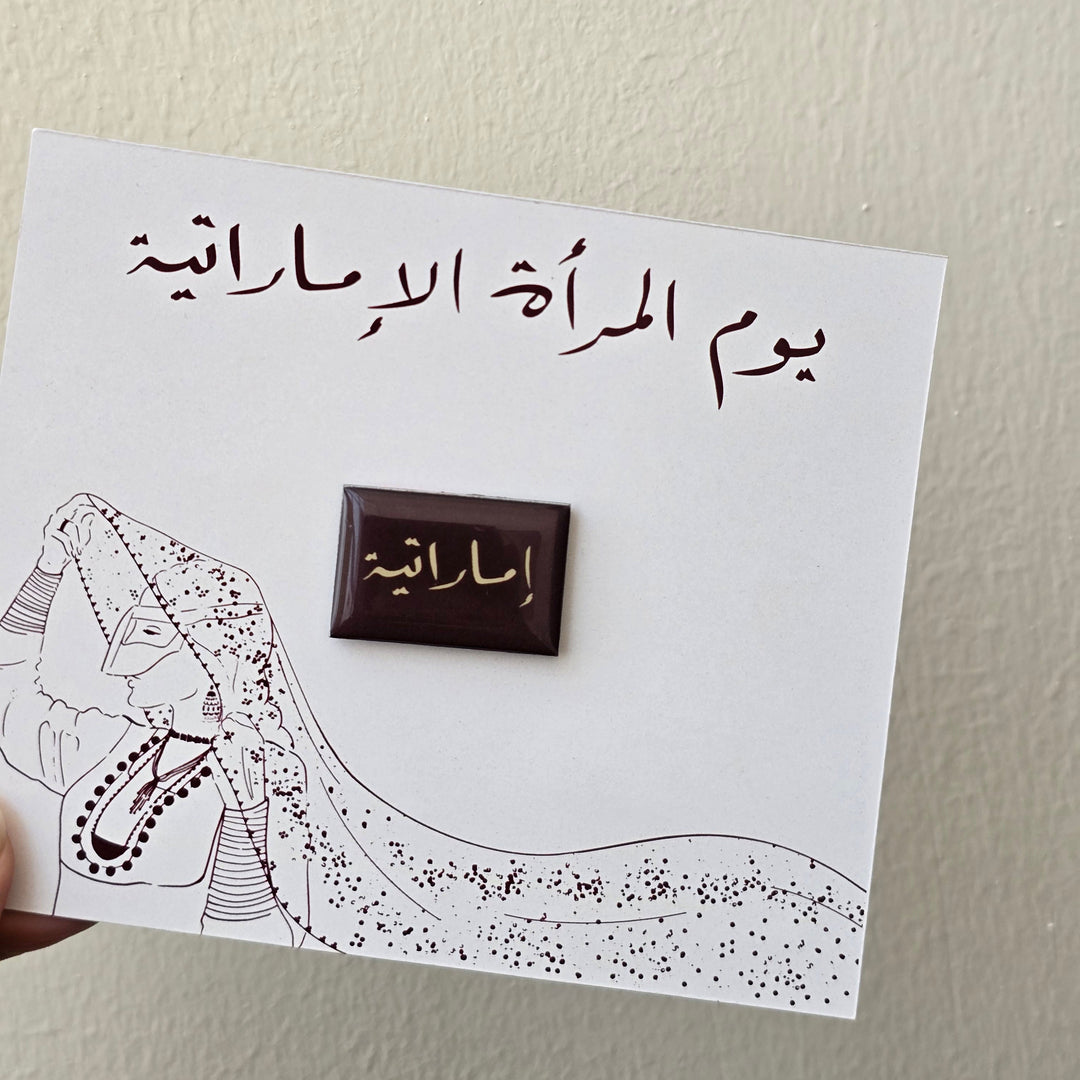 يوم المرأة الإماراتية
إماراتية